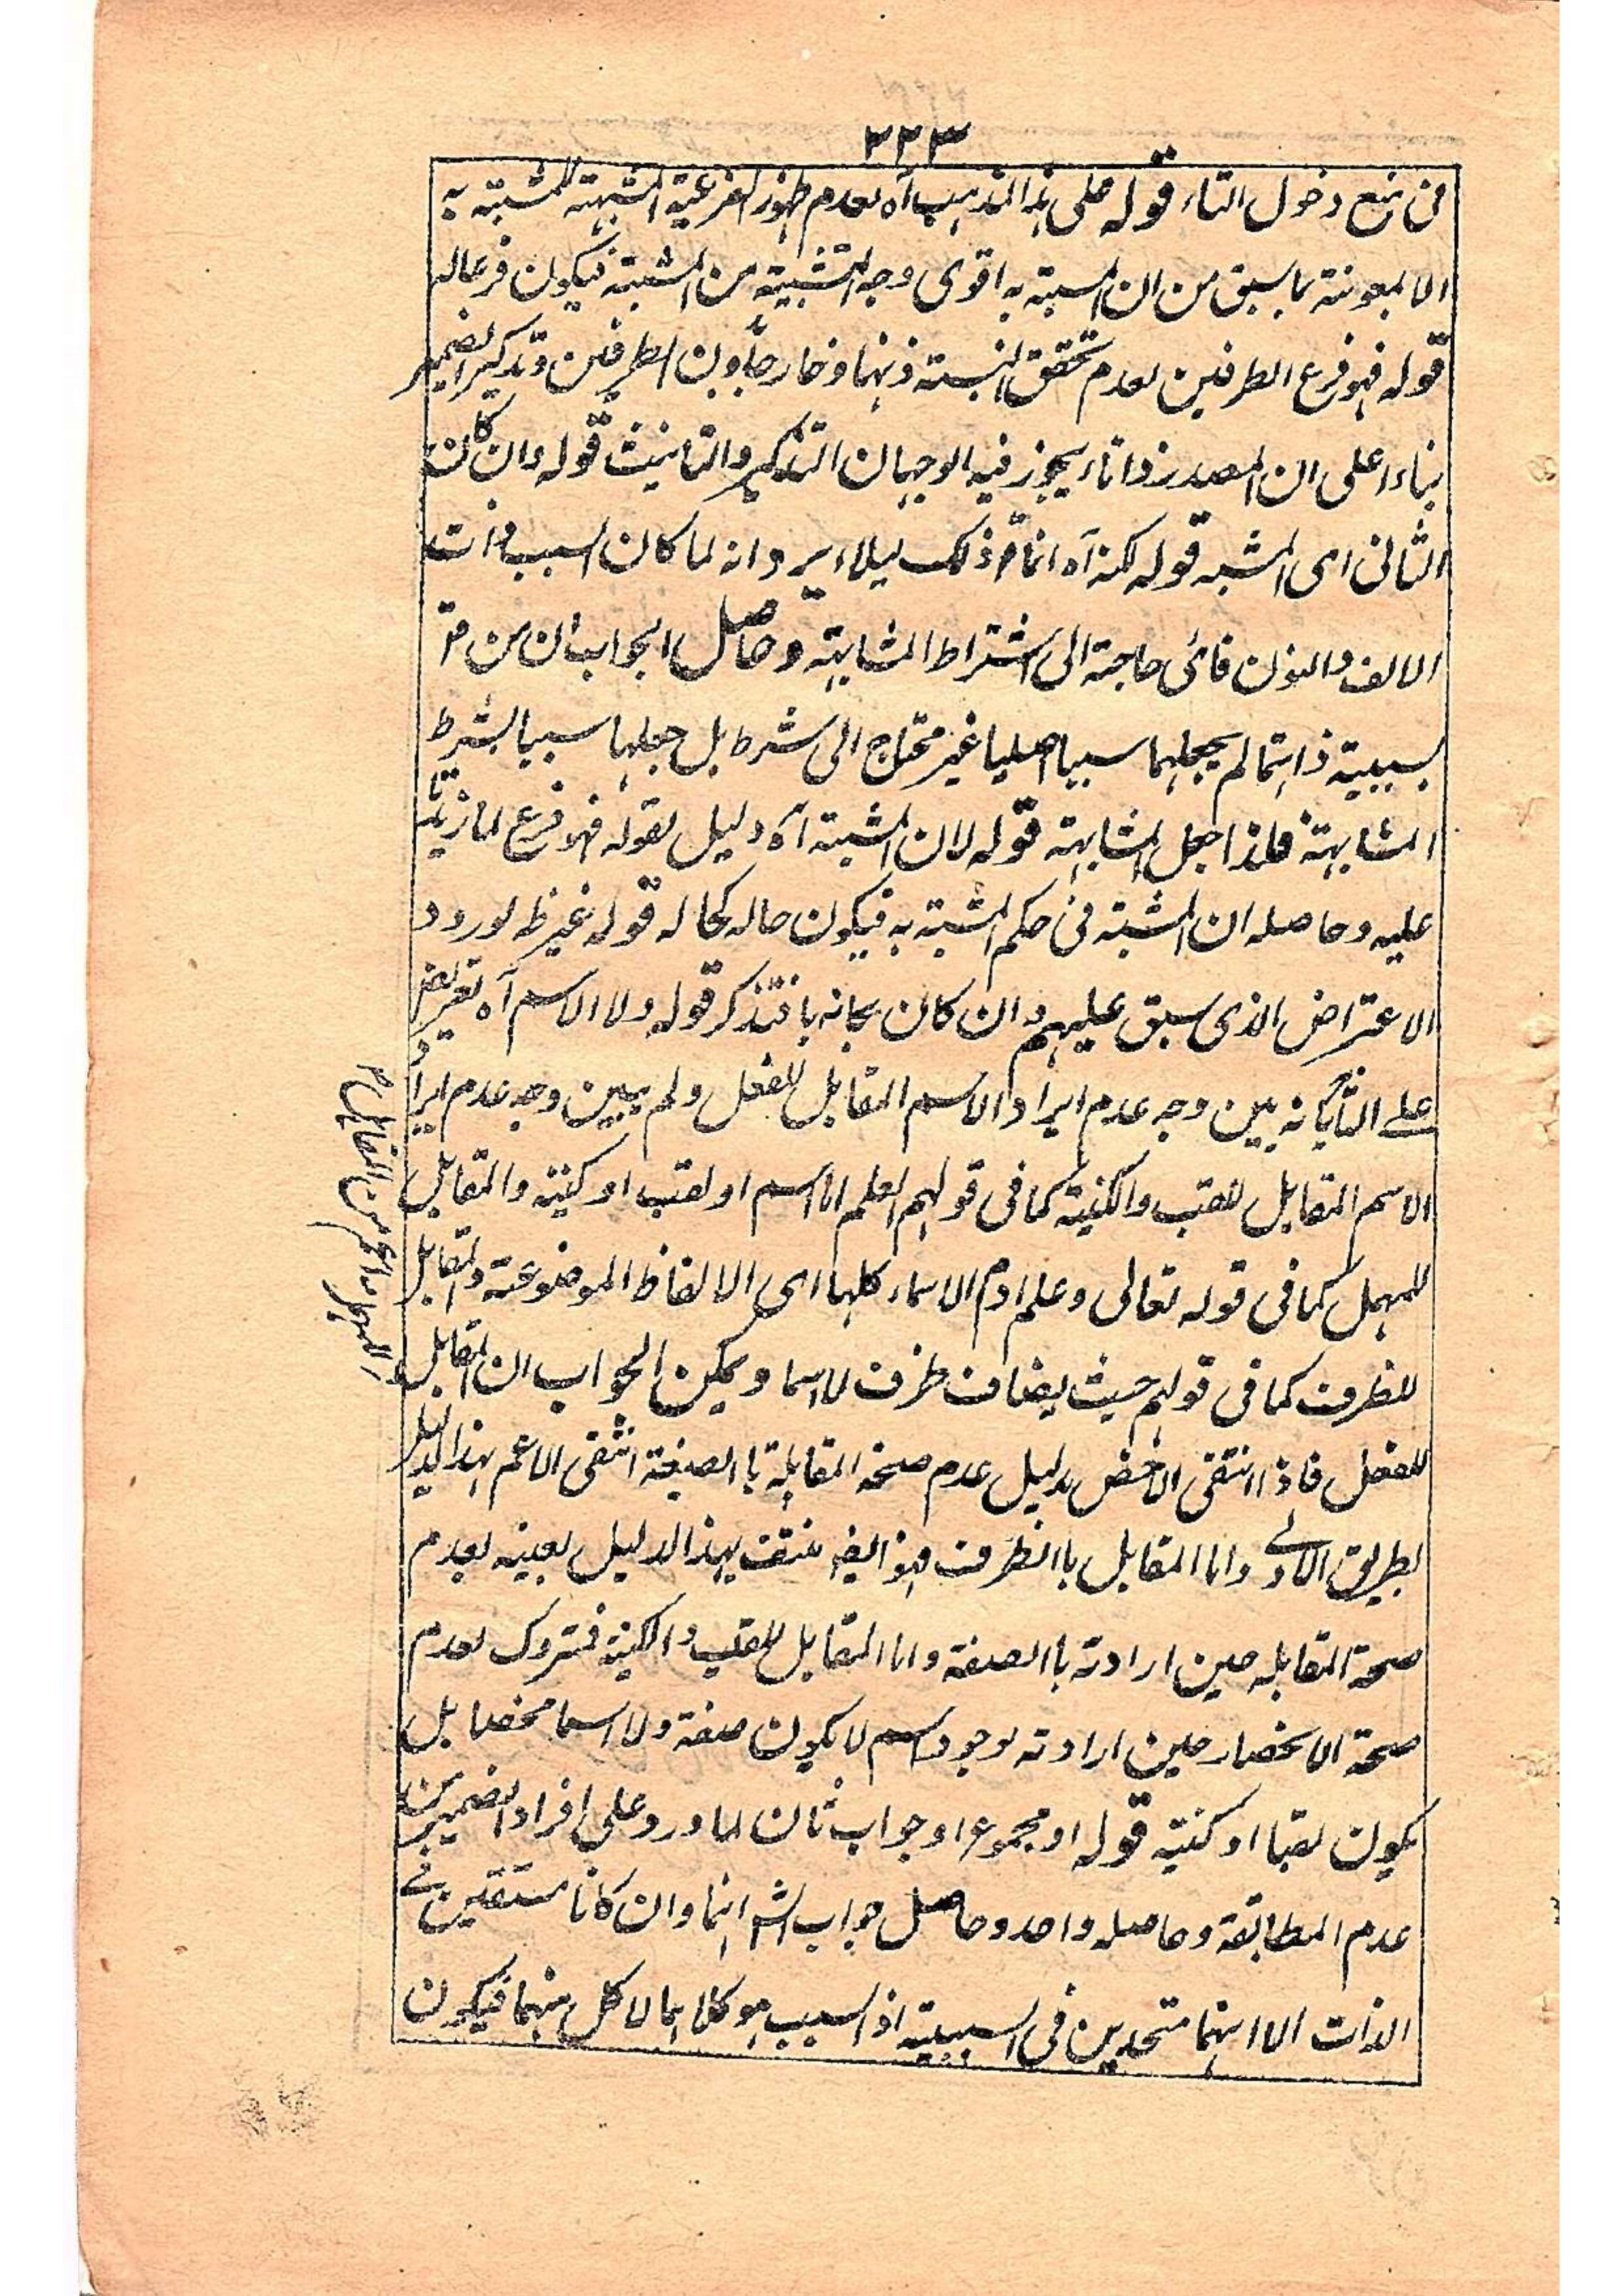 ٣٢٣
فى منع دخول التاء قوله على هذا المذهب آه لعدم ظهور الفرعية المشبهة للمشبه به
الا بمعونة ما سبق من ان المشبه به اقوى وجه التشبيه من المشبه فيكون فرعا له
قوله فهو فرع الطرفين لعدم تحقق النسبة ذهنا وخارجا بدون الطرفين وتذكير الضمير
بناء اعلى ان المصدر ذا تاء يجوز فيه الوجهان التذكير والتانيث قوله وان كان
الثانى اى المشبه قوله لكنه آه انما ذلك ليلا يرد انه لما كان السبب ذات
الالف والنون فاى حاجة الى اشتراط المشابهة وحاصل الجواب ان من
سببية ذاتهما لم يجعلهما سببا اصليا غير محتاج الى شرط بل جعلهما سببا بشرط
المشابهة فلذا جعل المشابهة قوله لان المشبه آه دليل لقوله فهو فرع لما زيدتا
عليه وحاصله ان المشبه فى حكم المشبه به فيكون حاله كحاله قوله غير ظ لورود
الاعتراض الذى سبق عليهم وان كان مجابه با فتذكر قوله ولا الاسم آه تعريض
على الشا بانه بين وجه عدم ايراد الاسم المقابل للفعل ولم يبين وجه عدم ايراد
الاسم المقابل للقب والكنية كما فى قولهم العلم اما اسم او لقب او كنية والمقابل
للمهمل كما فى قوله تعالى وعلم ادم الاسماء كلها اى الالفاظ الموضوعة والمقابل
للظرف كما فى قولهم حيث يضاف ظرف لا اسما ويمكن الجواب ان المقابل
للفعل فاذا انتقى الاخص بدليل عدم صحة المقابلة با الصفة انتفى الاعم بهذا الدليل
بطريق الاولے واما المقابل با الظرف فهو ايضا منتف بهذا الدليل بعينه لعدم
صحة المقابله حين ارادته با الصفة واما المقابل للقب والكنية فمتروك لعدم
صحة الانحصار حين ارادته لوجود اسم لا يكون صفة ولا اسما محضا بل
يكون لقبا او كنية قوله او مجموع او جواب ثان لما ورد على افراد الضمير من
عدم المطابقة وحاصله واحد وحاصل جواب الش انهما وان كانا مستقلين فے
الذات الا انهما متحدين فى السببية اذ السبب هو كلاهما لا كل منهما فيكون